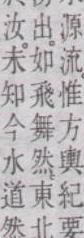 源流惟方輿紀要
出如飛舞然東北
汝未知今水道然